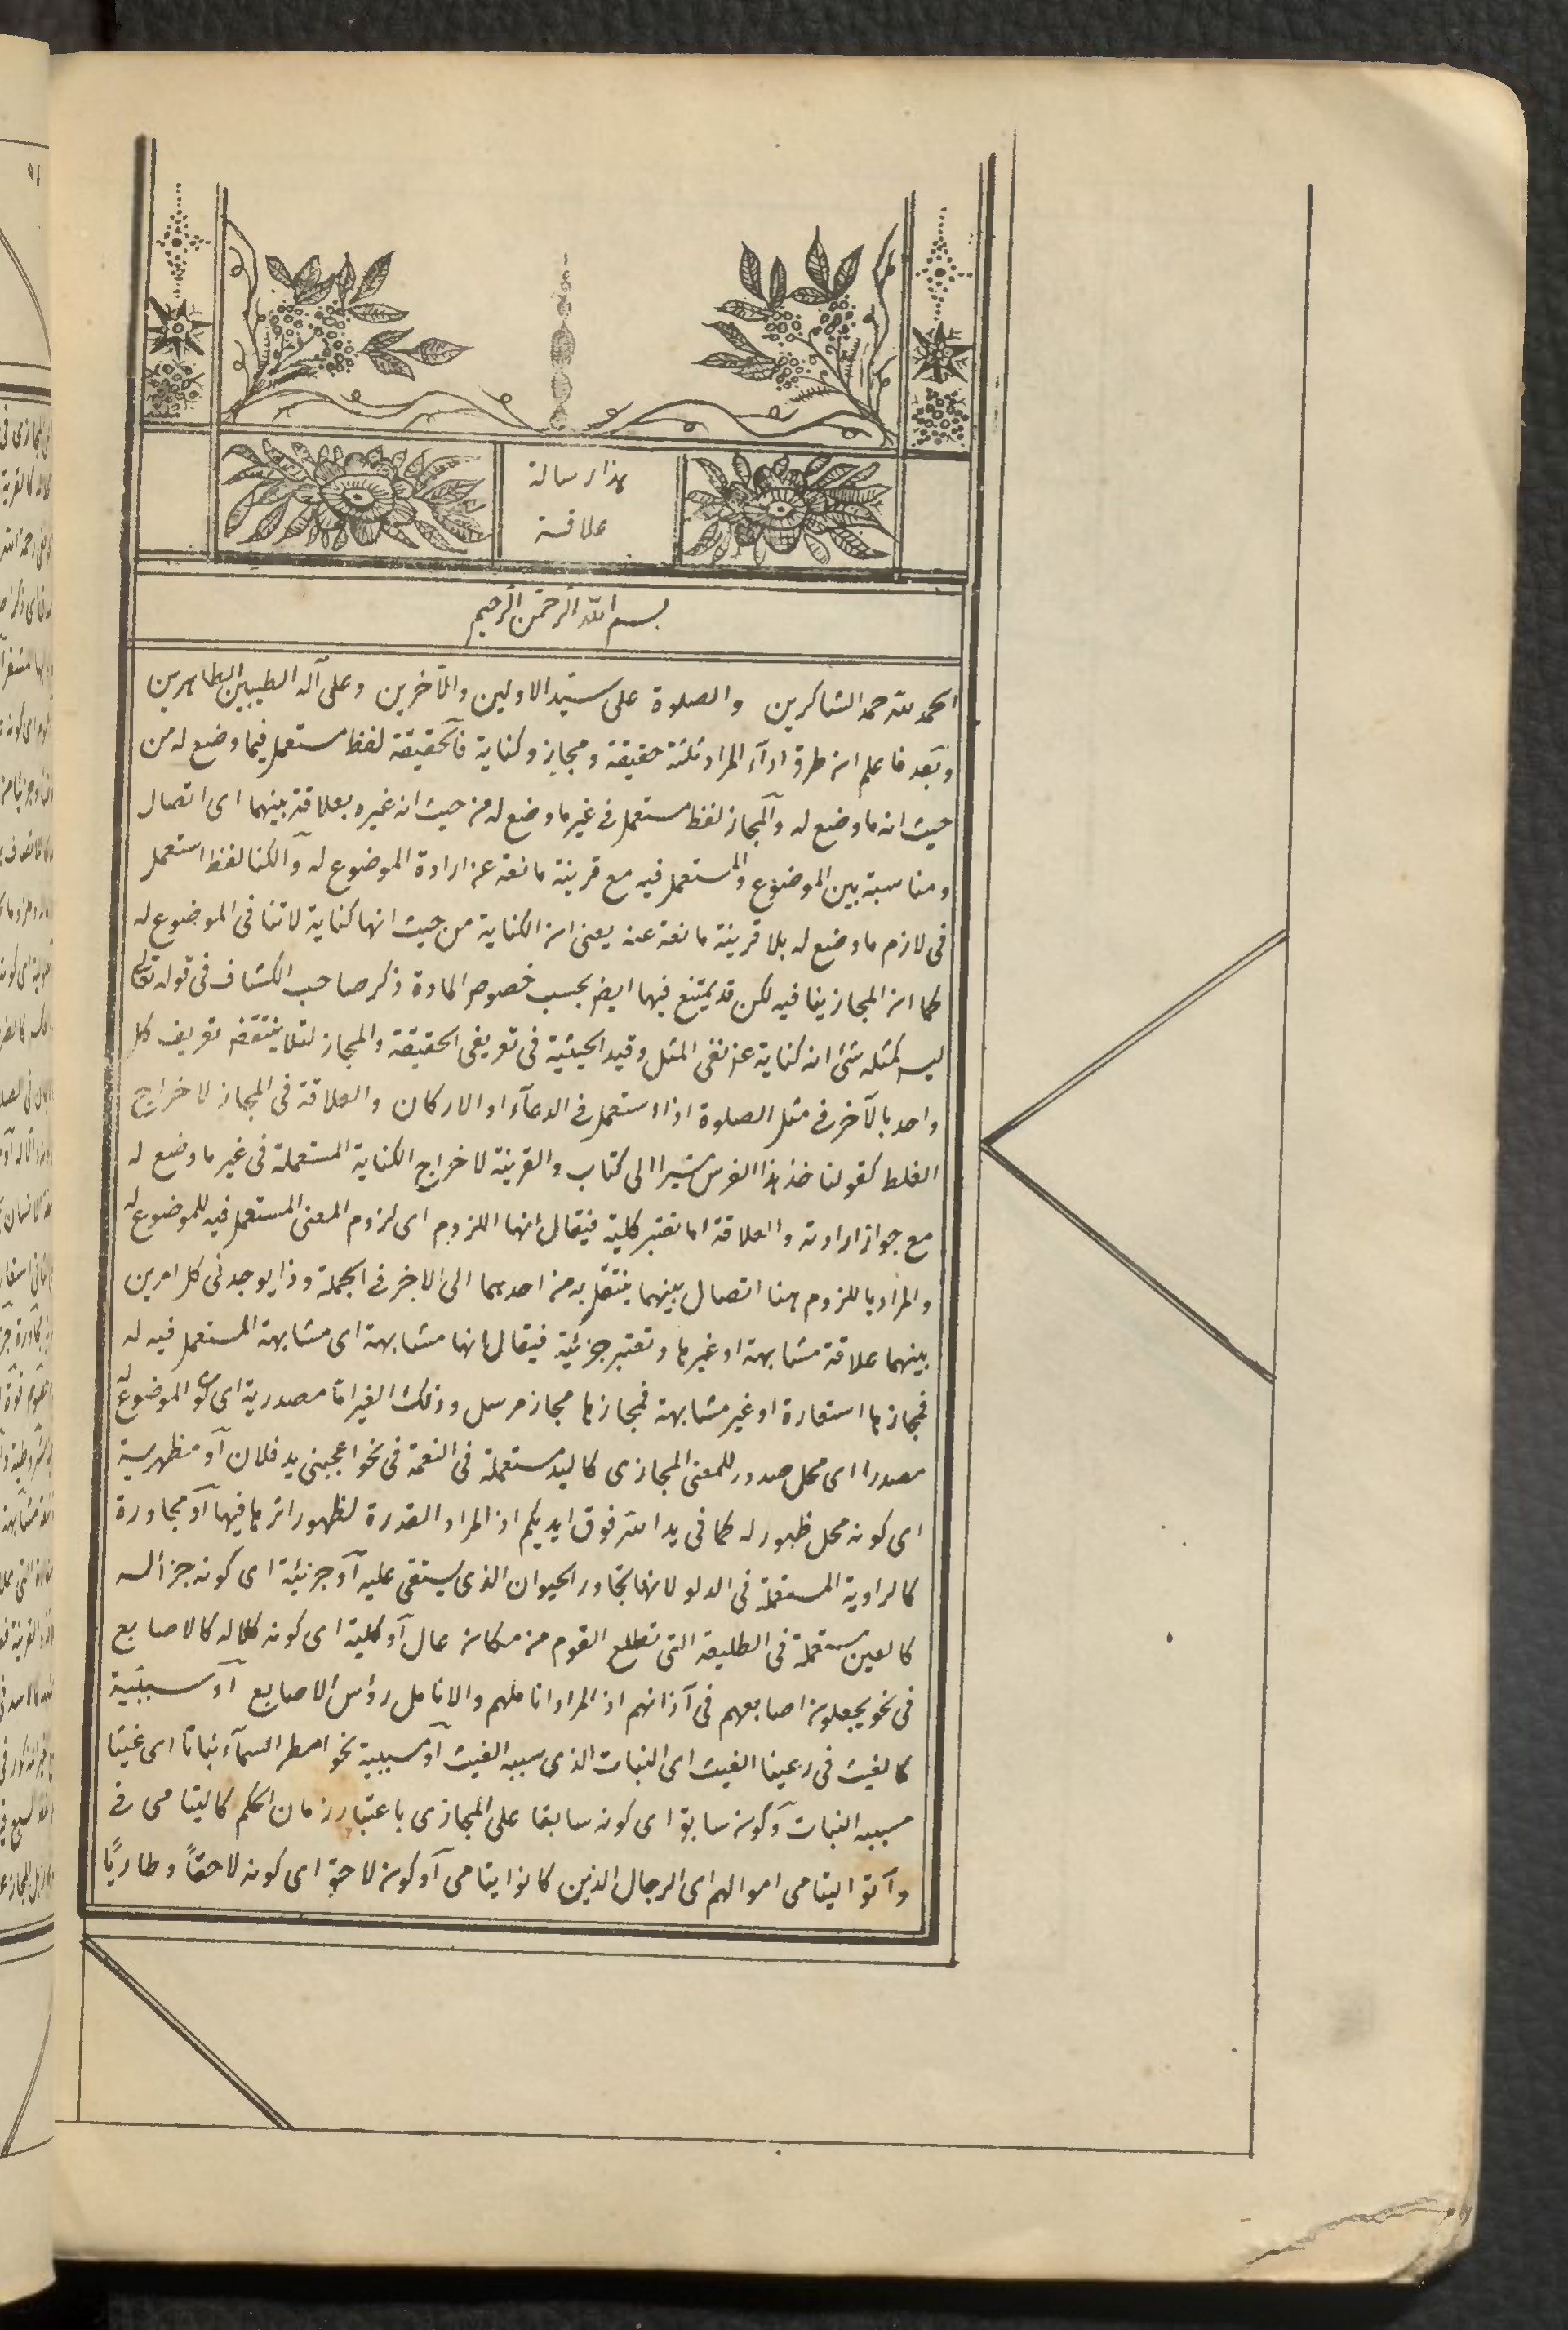 هذا رسالة
علاقة
بسم الله الرحمن الرحيم
الحمد لله حمد الشاكرين والصلوة على سيد الاولين والآخرين وعلى آله الطيبين الطاهرين
وبعد فاعلم ان طرق ادآء المراد ثلثة حقيقة ومجاز وكناية فالحقيقة لفظ مستعمل فيما وضع له من
حيث انه ما وضع له والمجاز لفظ مستعمل فى غير ما وضع له من حيث انه غيره بعلاقة بينهما اى اتصال
ومناسبة بين الموضوع والمستعمل فيه مع قرينة مانعة عن ارادة الموضوع له والكنا لفظ استعمل
فى لازم ما وضع له بلا قرينة مانعة عنه يعنى ان الكناية من حيث انها كناية لا تنافى الموضوع له
كما ان المجاز ينافيه لكن قد يمتنع فيها ايضا بحسب خصوص المادة ذكر صاحب الكشاف فى قوله تعالى
ليس كمثله شئ انه كناية عن نفى المثل وقيد الحيثية فى تعريفى الحقيقة والمجاز لئلا ينتقض تعريف كل
واحد بالآخر فى مثل الصلوة اذا استعمل فى الدعآء او الاركان والعلاقة فى المجاز لاخراج
الغلط كقولنا خذ هذا الفرس مشيرا الى كتاب والقرينة لاخراج الكناية المستعملة فى غير ما وضع له
مع جواز ارادته والعلاقة اما تعتبر كلية فيقال انها اللزوم اى لزوم المعنى المستعمل فيه للموضوع له
والمراد باللزوم هنا اتصال بينهما ينتقل به من احدهما الى الاخر فى الجملة وذا يوجد فى كل امرين
بينهما علاقة مشابهة او غيرها وتعتبر جزئية فيقال انها مشابهة اى مشابهة المستعمل فيه له
فمجازها استعارة او غير مشابهة فمجازها مجاز مرسل وذلك الغير اما مصدرية اى كون الموضوع له
مصدرا اى محل صدور للمعنى المجازى كاليد مستعملة فى النعمة فى نحو اعجبنى يد فلان او مظهرية
اى كونه محل ظهور له كما فى يد الله فوق ايديكم اذ المراد القدرة لظهور اثرها فيها او مجاورة
كالراوية المستعملة فى الدلو لانها تجاور الحيوان الذى يستقى عليه او جزئية اى كونه جزأ له
كالعين مستعملة فى الطليعة التى تطلع القوم من مكان عال او كلية اى كونه كلا له كالاصابع
فى نحو يجعلون اصابعهم فى آذانهم اذ المراد اناملهم والانامل رؤس الاصابع او سببية
كالغيث فى رعينا الغيث اى النبات الذى سببه الغيث او مسببية نحو امطر السمآء نباتا اى غيثا
مسببه النبات او كونه سابقا اى كونه سابقا على المجازى باعتبار زمان الحكم كاليتامى فى
وآتوا اليتامى اموالهم اى الرجال الذين كانوا يتامى او كونه لاحقا اى كونه لاحقاً وطارياً